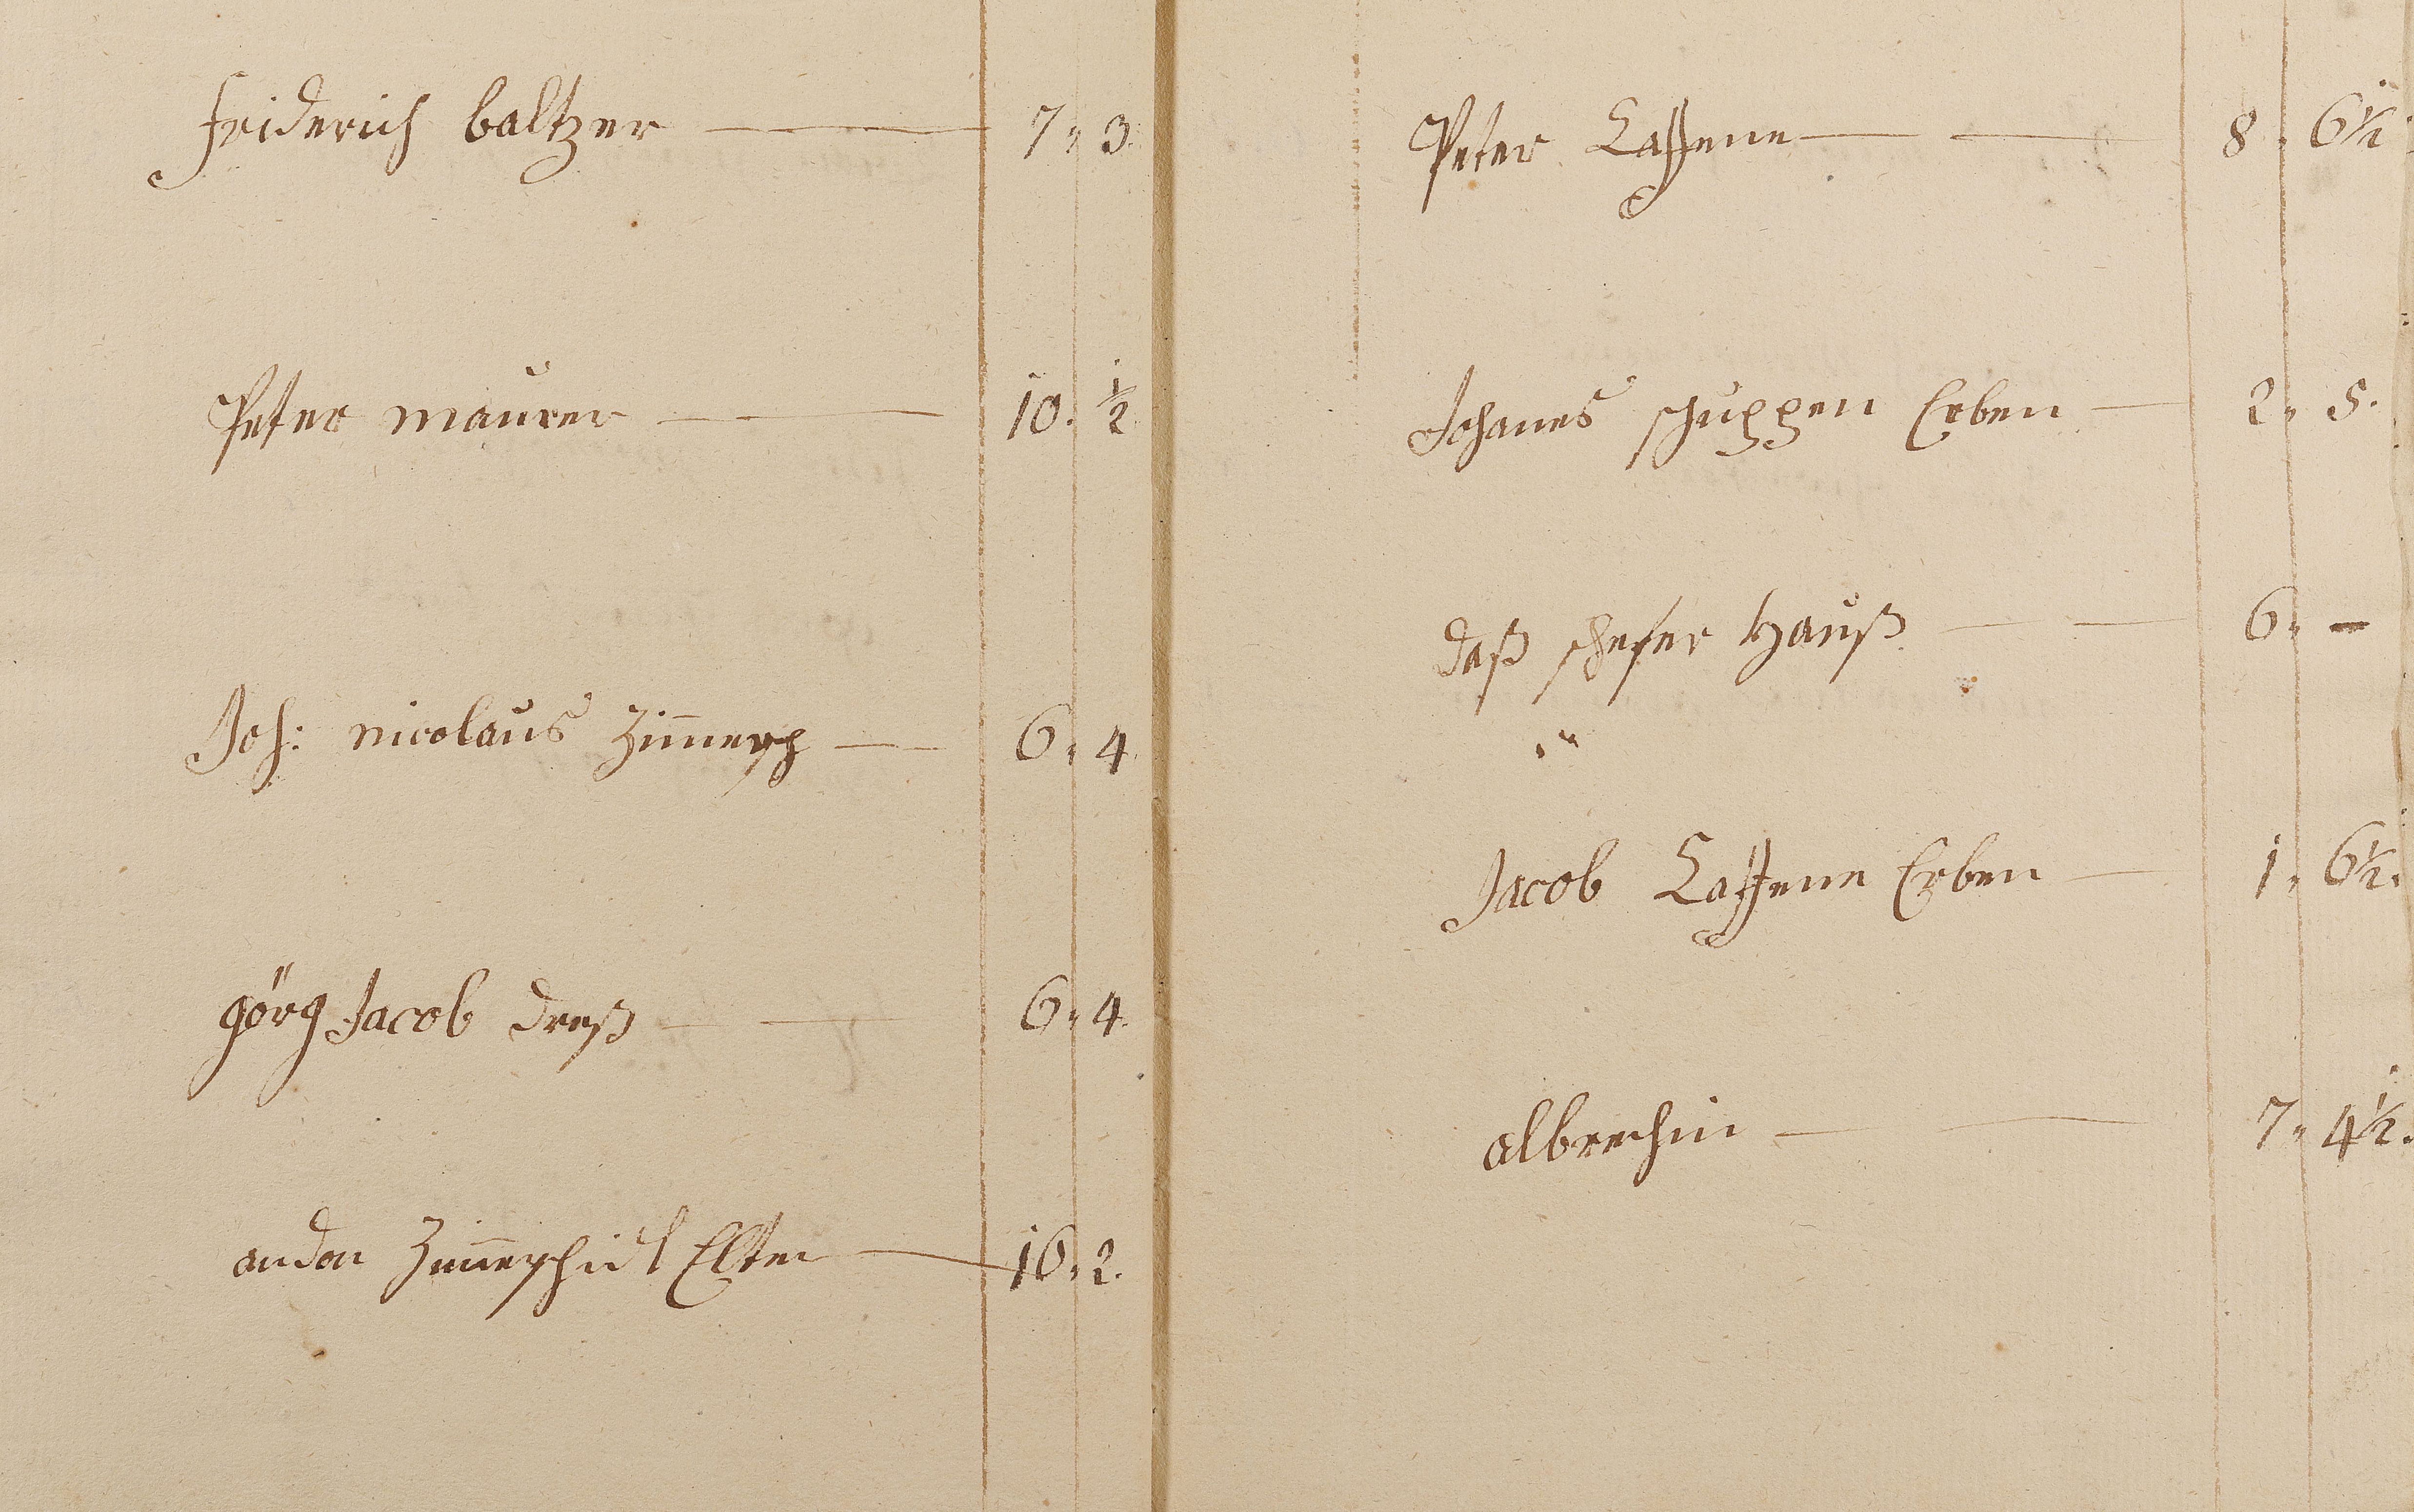 friderich baltzer — 7 „ 3.
Peter maurer — 10. ½
Joh: nicolaus Zim̄ersch — 6 „ 4
görg Jacob dreß — 6 „ 4.
andon Zim̄erschidt Elter — 16 „ 2.
Peter Lassene — 8 „ 6½
Johanes schuppen Erben — 2 „ 5.
daß schefer Hauß — 6 „ —
Jacob Lassene Erben — 1 „ 6½.
albrechin — 7 „ 4½.